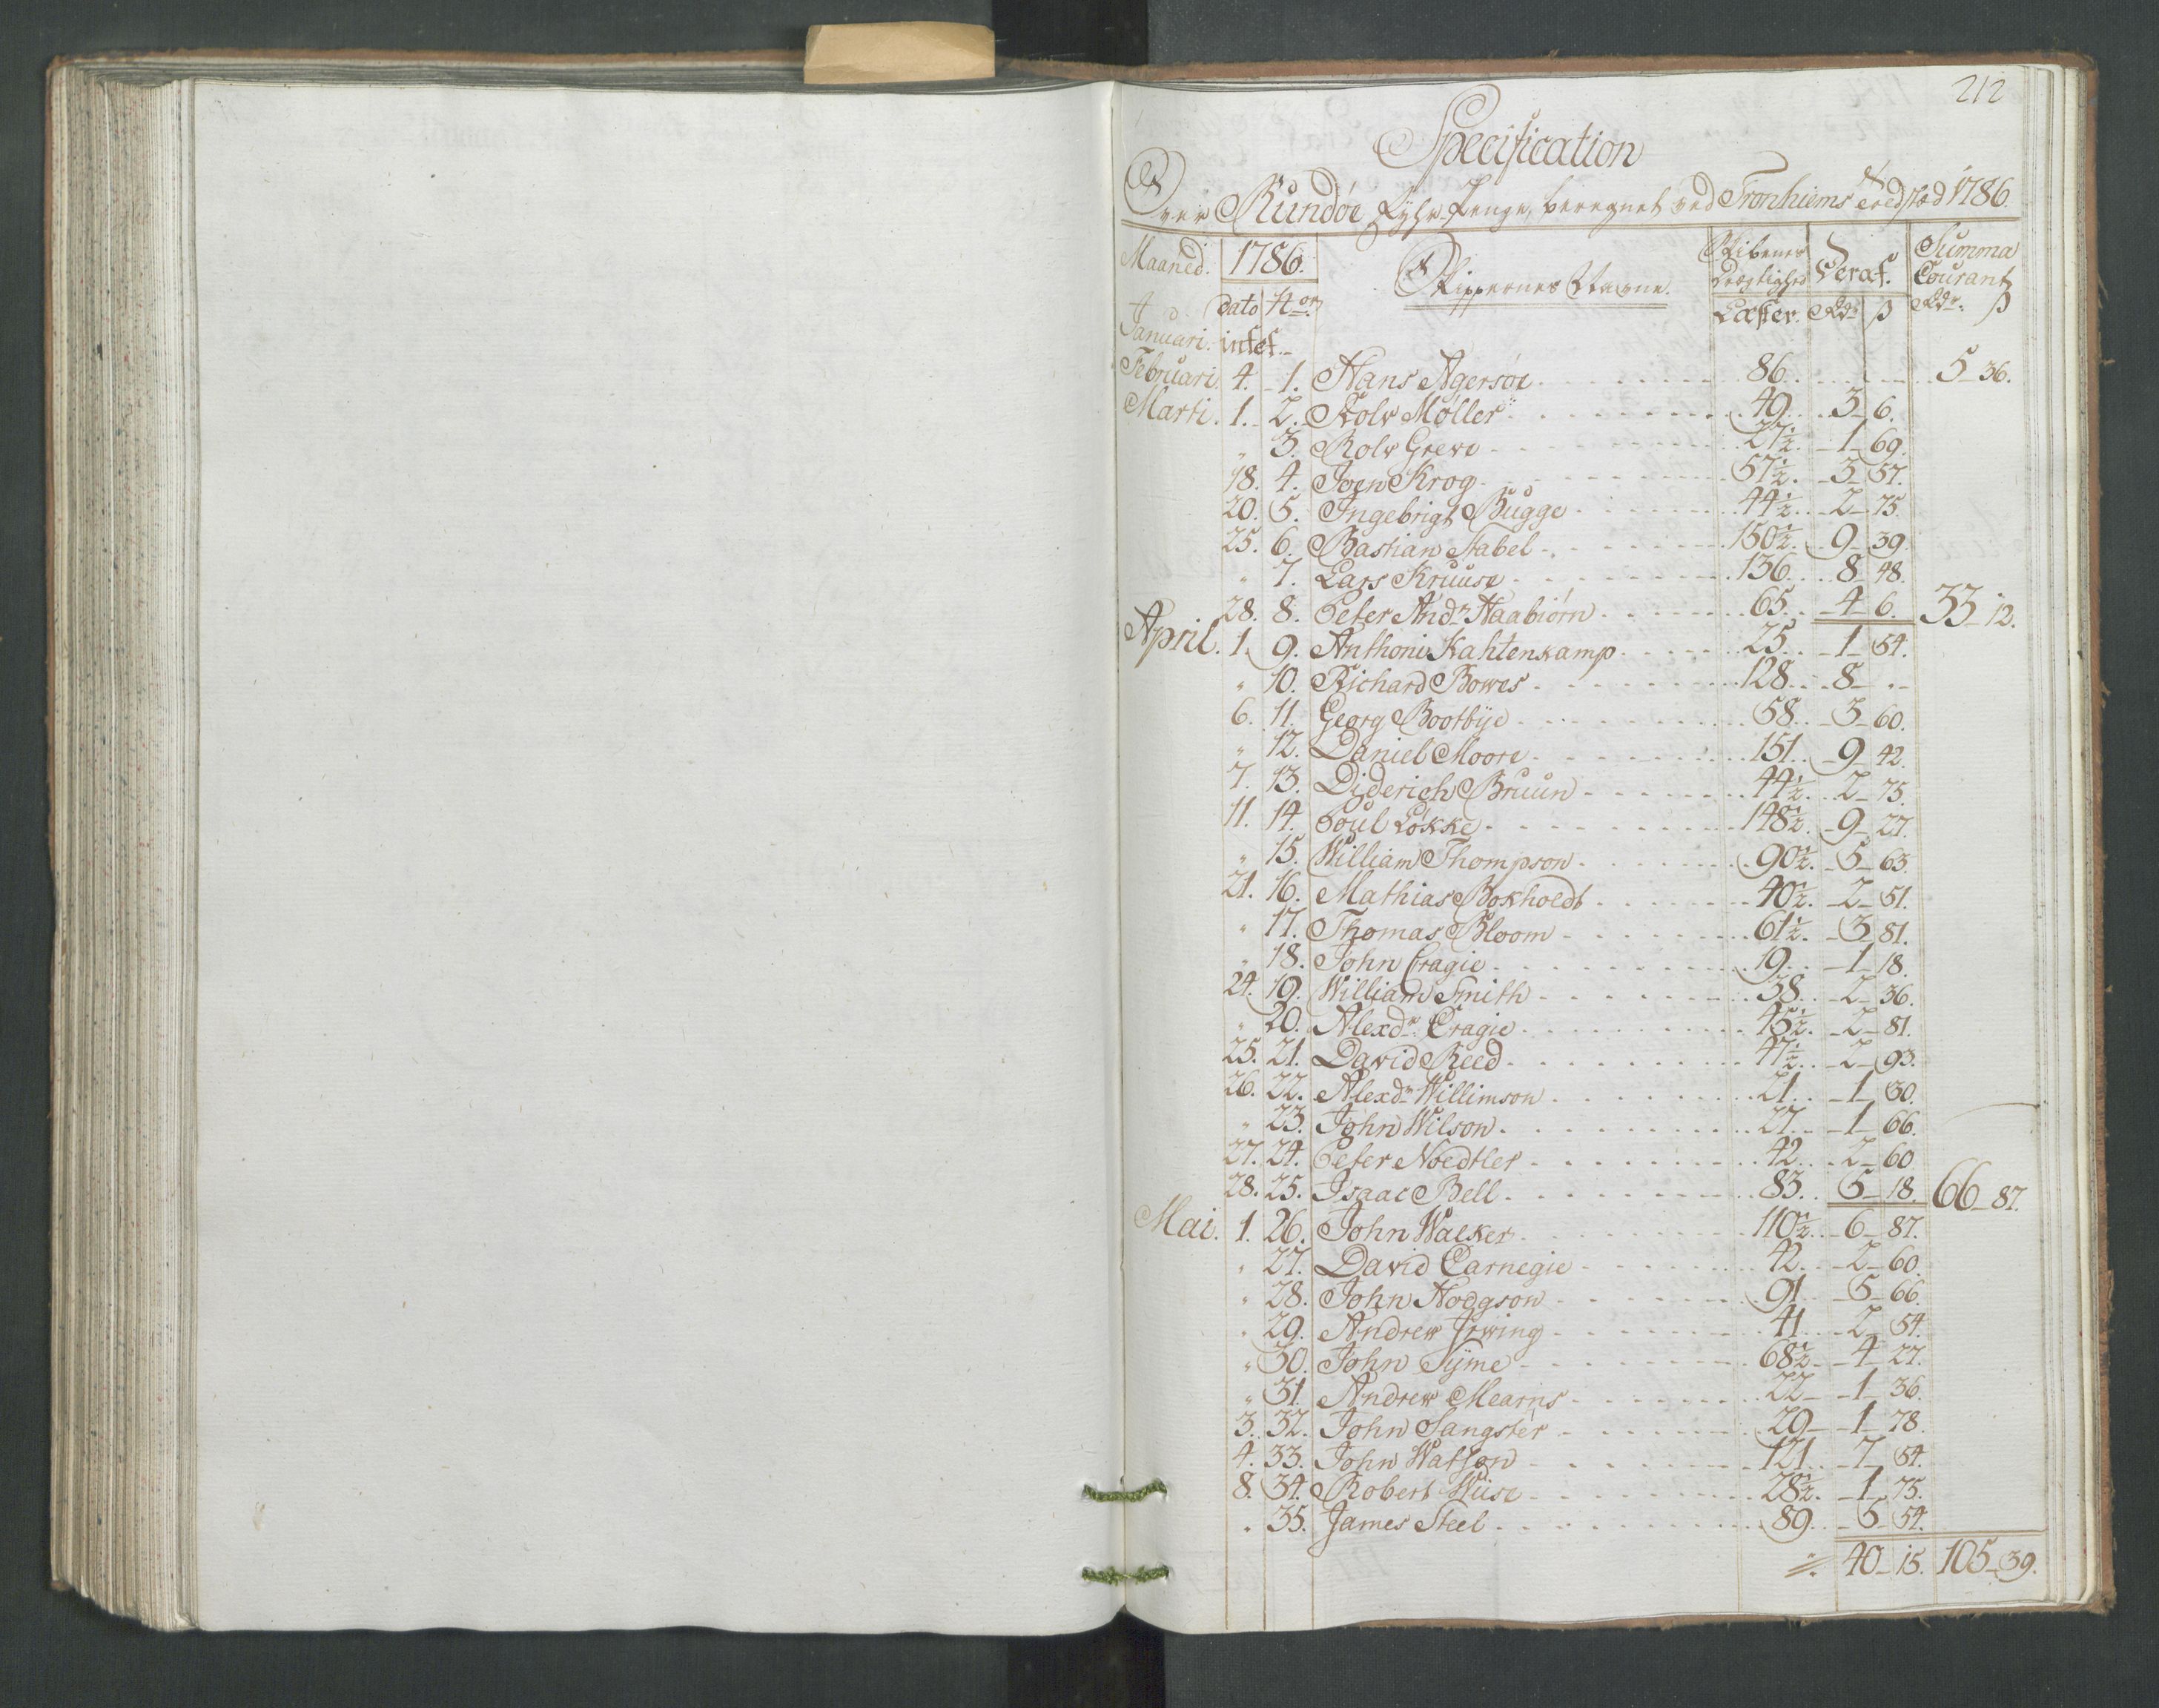 212
Specification
Over Rundøe Fyhr-Penge, beregnet ved Tronhiems Toldsted 1786.
Maaned. 1786. Skippernes Navne. Skibenes Drægtighed Deraf. Summa Courant
Dato No Læster. Rdr ß Rdr ß
Januari. intet.
Februari. 4. 1. Hans Agersøe 86. 5 36.
Marti. 1. 2. Rolv Møller 49. 3 6.
" 3. Rolv Greve 27½. 1 69.
18. 4. Joen Krog 57½. 3 57.
20. 5. Ingebrigt Bugge 44½. 2 75
25. 6. Bastian Stabel 150½. 9 39.
" 7. Lars Kruuse 136. 8 48.
28. 8. Peter Andr Haabiørn 65. 4 6. 33 12.
April. 1. 9. Anthoni Kahtenkamp 25. 1 54.
" 10. Richard Bowes 128. 8 "
6. 11. Georg Bootbye 58. 3 60.
" 12. Daniel Moore 151. 9 42.
7. 13. Diderich Bruun 44½. 2 75.
11. 14. Poul Løkke 148½. 9 27.
" 15. William Thompson 90½. 5 63.
21. 16. Mathias Bokholdt 40½. 2 51.
" 17. Thomas Bloom 61½. 3 81.
" 18. John Cragie 19. 1 18.
24. 19. William Smith 38. 2 36.
" 20. Alexdr Cragie 45½. 2 81.
25. 21. David Reed 47½. 2 93.
26. 22. Alexdr Willimson 21. 1 30.
" 23. John Wilson 27. 1 66.
27. 24. Peter Noedtler 42. 2 60
28. 25. Isaac Bell 83. 5 18. 66 87.
Mai. 1. 26. John Walker 110½. 6 87.
" 27. David Carnegie 42. 2 60.
" 28. John Hodgson 91 5 66.
" 29. Andrew Irwing 41 2 54.
" 30. John Syme 68½ 4 27.
" 31. Andrew Mearns 22 1 36.
3. 32. John Sangster 29 1 78.
4. 33. John Watson 121 7 54.
8. 34. Robert Wiise 28½. 1 75.
" 35. James Steel 89. 5 54.
40 15. 105 39.